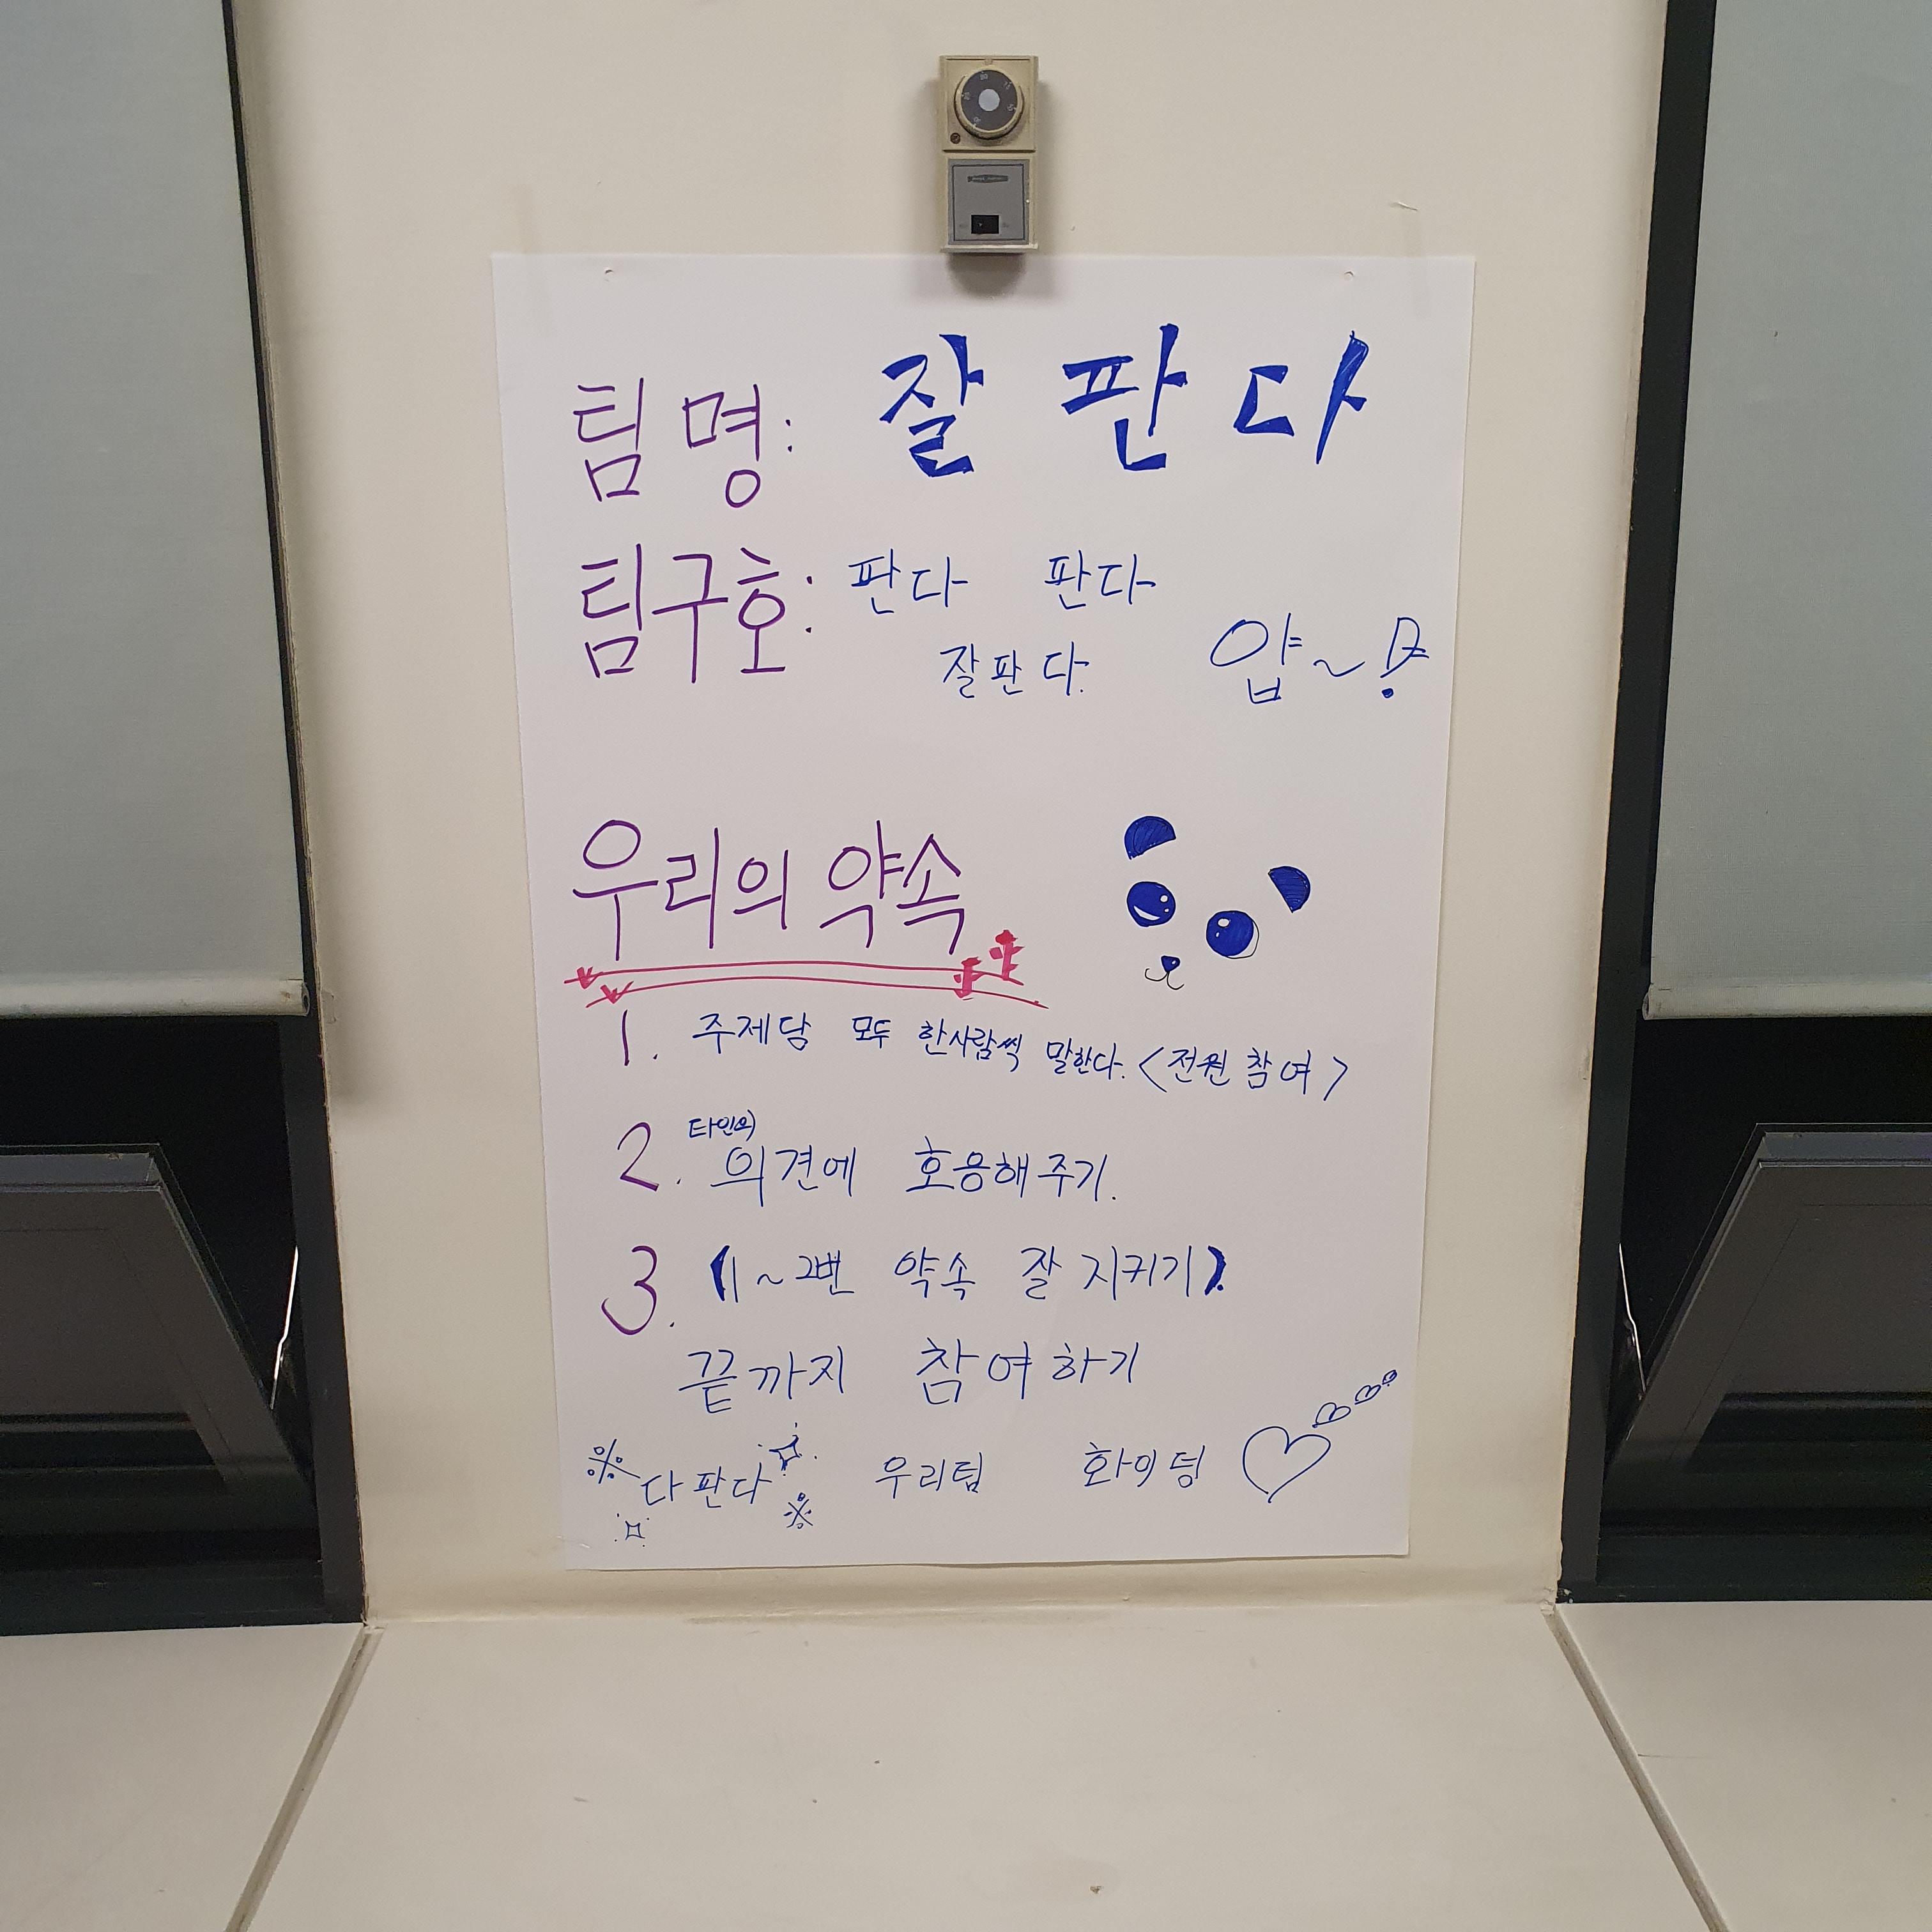 팀 명: 잘 판 다
팀구호: 판다 판다
잘판다. 얍~!
우리의 약속
1. 주제당 모두 한사람씩 말한다. <전원 참여>
2. 타인의 의견에 호응해주기.
3. (1~2번 약속 잘 지키기).
끝까지 참여하기
※ 다판다 ※ 우리팀 화이팅